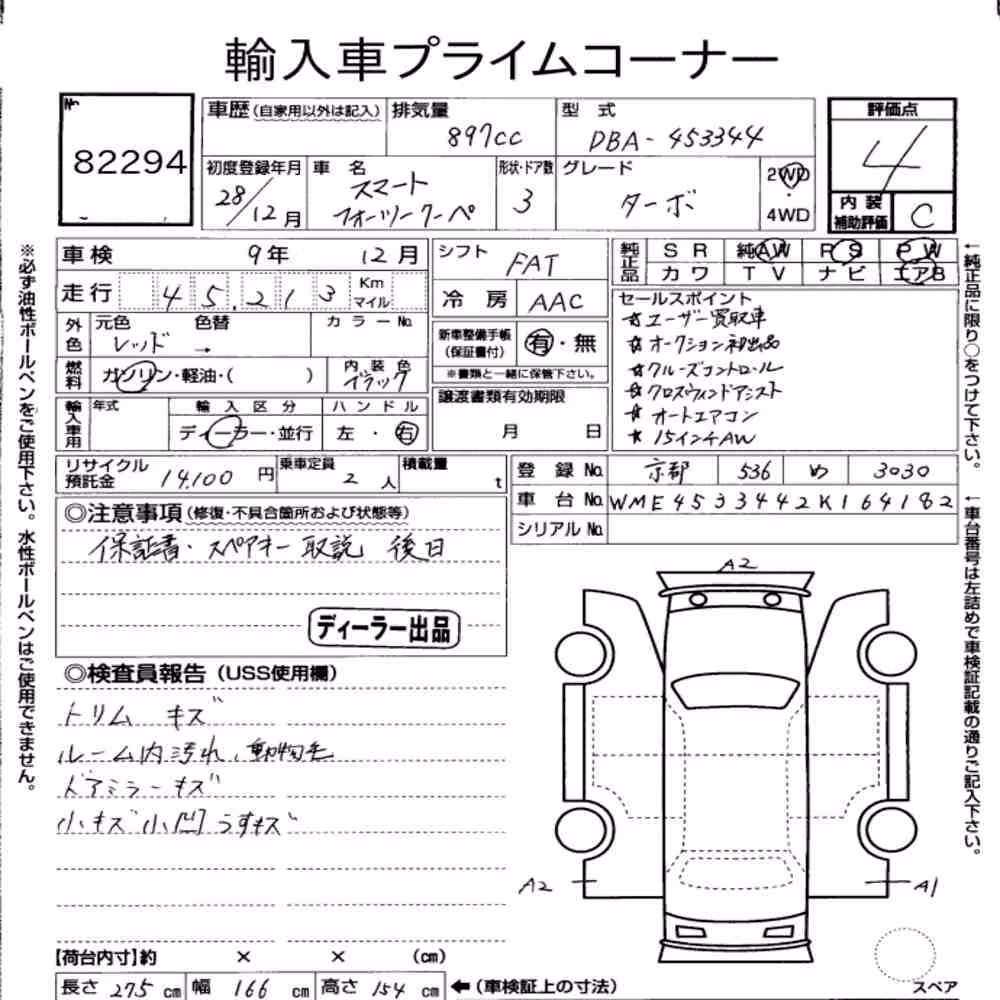 輸入車プライムコーナー
No
82294
車歴(自家用以外は記入)
排気量
897cc
型 式
DBA-453344
評価点
4
内装補助評価
C
初度登録年月
28/12月
車 名
スマート
フォーツークーペ
形状・ドア数
3
グレード
ターボ
2WD
4WD
車検 9年 12月
シフト FAT
純正品
SR 純AW PS PW
カワ TV ナビ エアB
走行 45,213 Km マイル
冷房 AAC
外色 元色 色替 カラーNo.
レッド →
新車整備手帳(保証書付) 有・無
※書類と一緒に保管下さい。
燃料 ガソリン・軽油・( )
内装色
ブラック
譲渡書類有効期限
月 日
輸入車用 年式 輸入区分 ハンドル
ディーラー・並行 左・右
セールスポイント
☆ユーザー買取車
☆オークション初出品
☆クルーズコントロール
☆クロスウィンドアシスト
☆オートエアコン
☆15インチAW
リサイクル預託金 14,100円
乗車定員 2人
積載量 t
登録No. 京都 536 め 3030
車台No. WME4533442K164182
シリアルNo.
◎注意事項(修復・不具合箇所および状態等)
保証書・スペアキー 取説 後日
ディーラー出品
◎検査員報告(USS使用欄)
トリム キズ
ルーム内汚れ、動物毛
ドアミラーキズ
小キズ 小凹 うすキズ
A2
A2
A1
スペア
【荷台内寸】約 × × (cm)
長さ 275 cm 幅 166 cm 高さ 154 cm ←(車検証上の寸法)
※必ず油性ボールペンをご使用下さい。水性ボールペンはご使用できません。
←純正品に限り○をつけて下さい。
←車台番号は左詰めで車検証記載の通りご記入下さい。